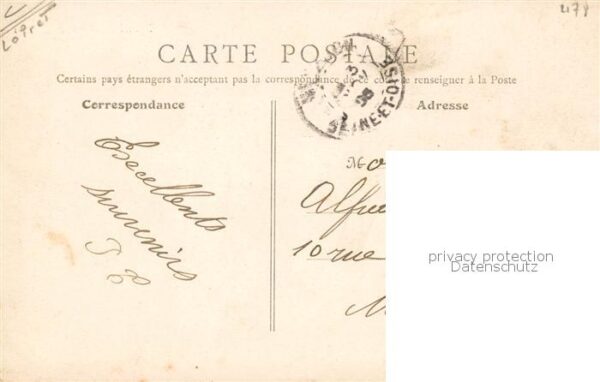 Loiret
4178
CARTE POSTALE
Certains pays étrangers n'acceptant pas la correspondance de ce côté se renseigner à la Poste
Correspondance
Adresse
SEINE-ET-OISE
Excellents
souvenirs
10 rue
privacy protection
Datenschutz